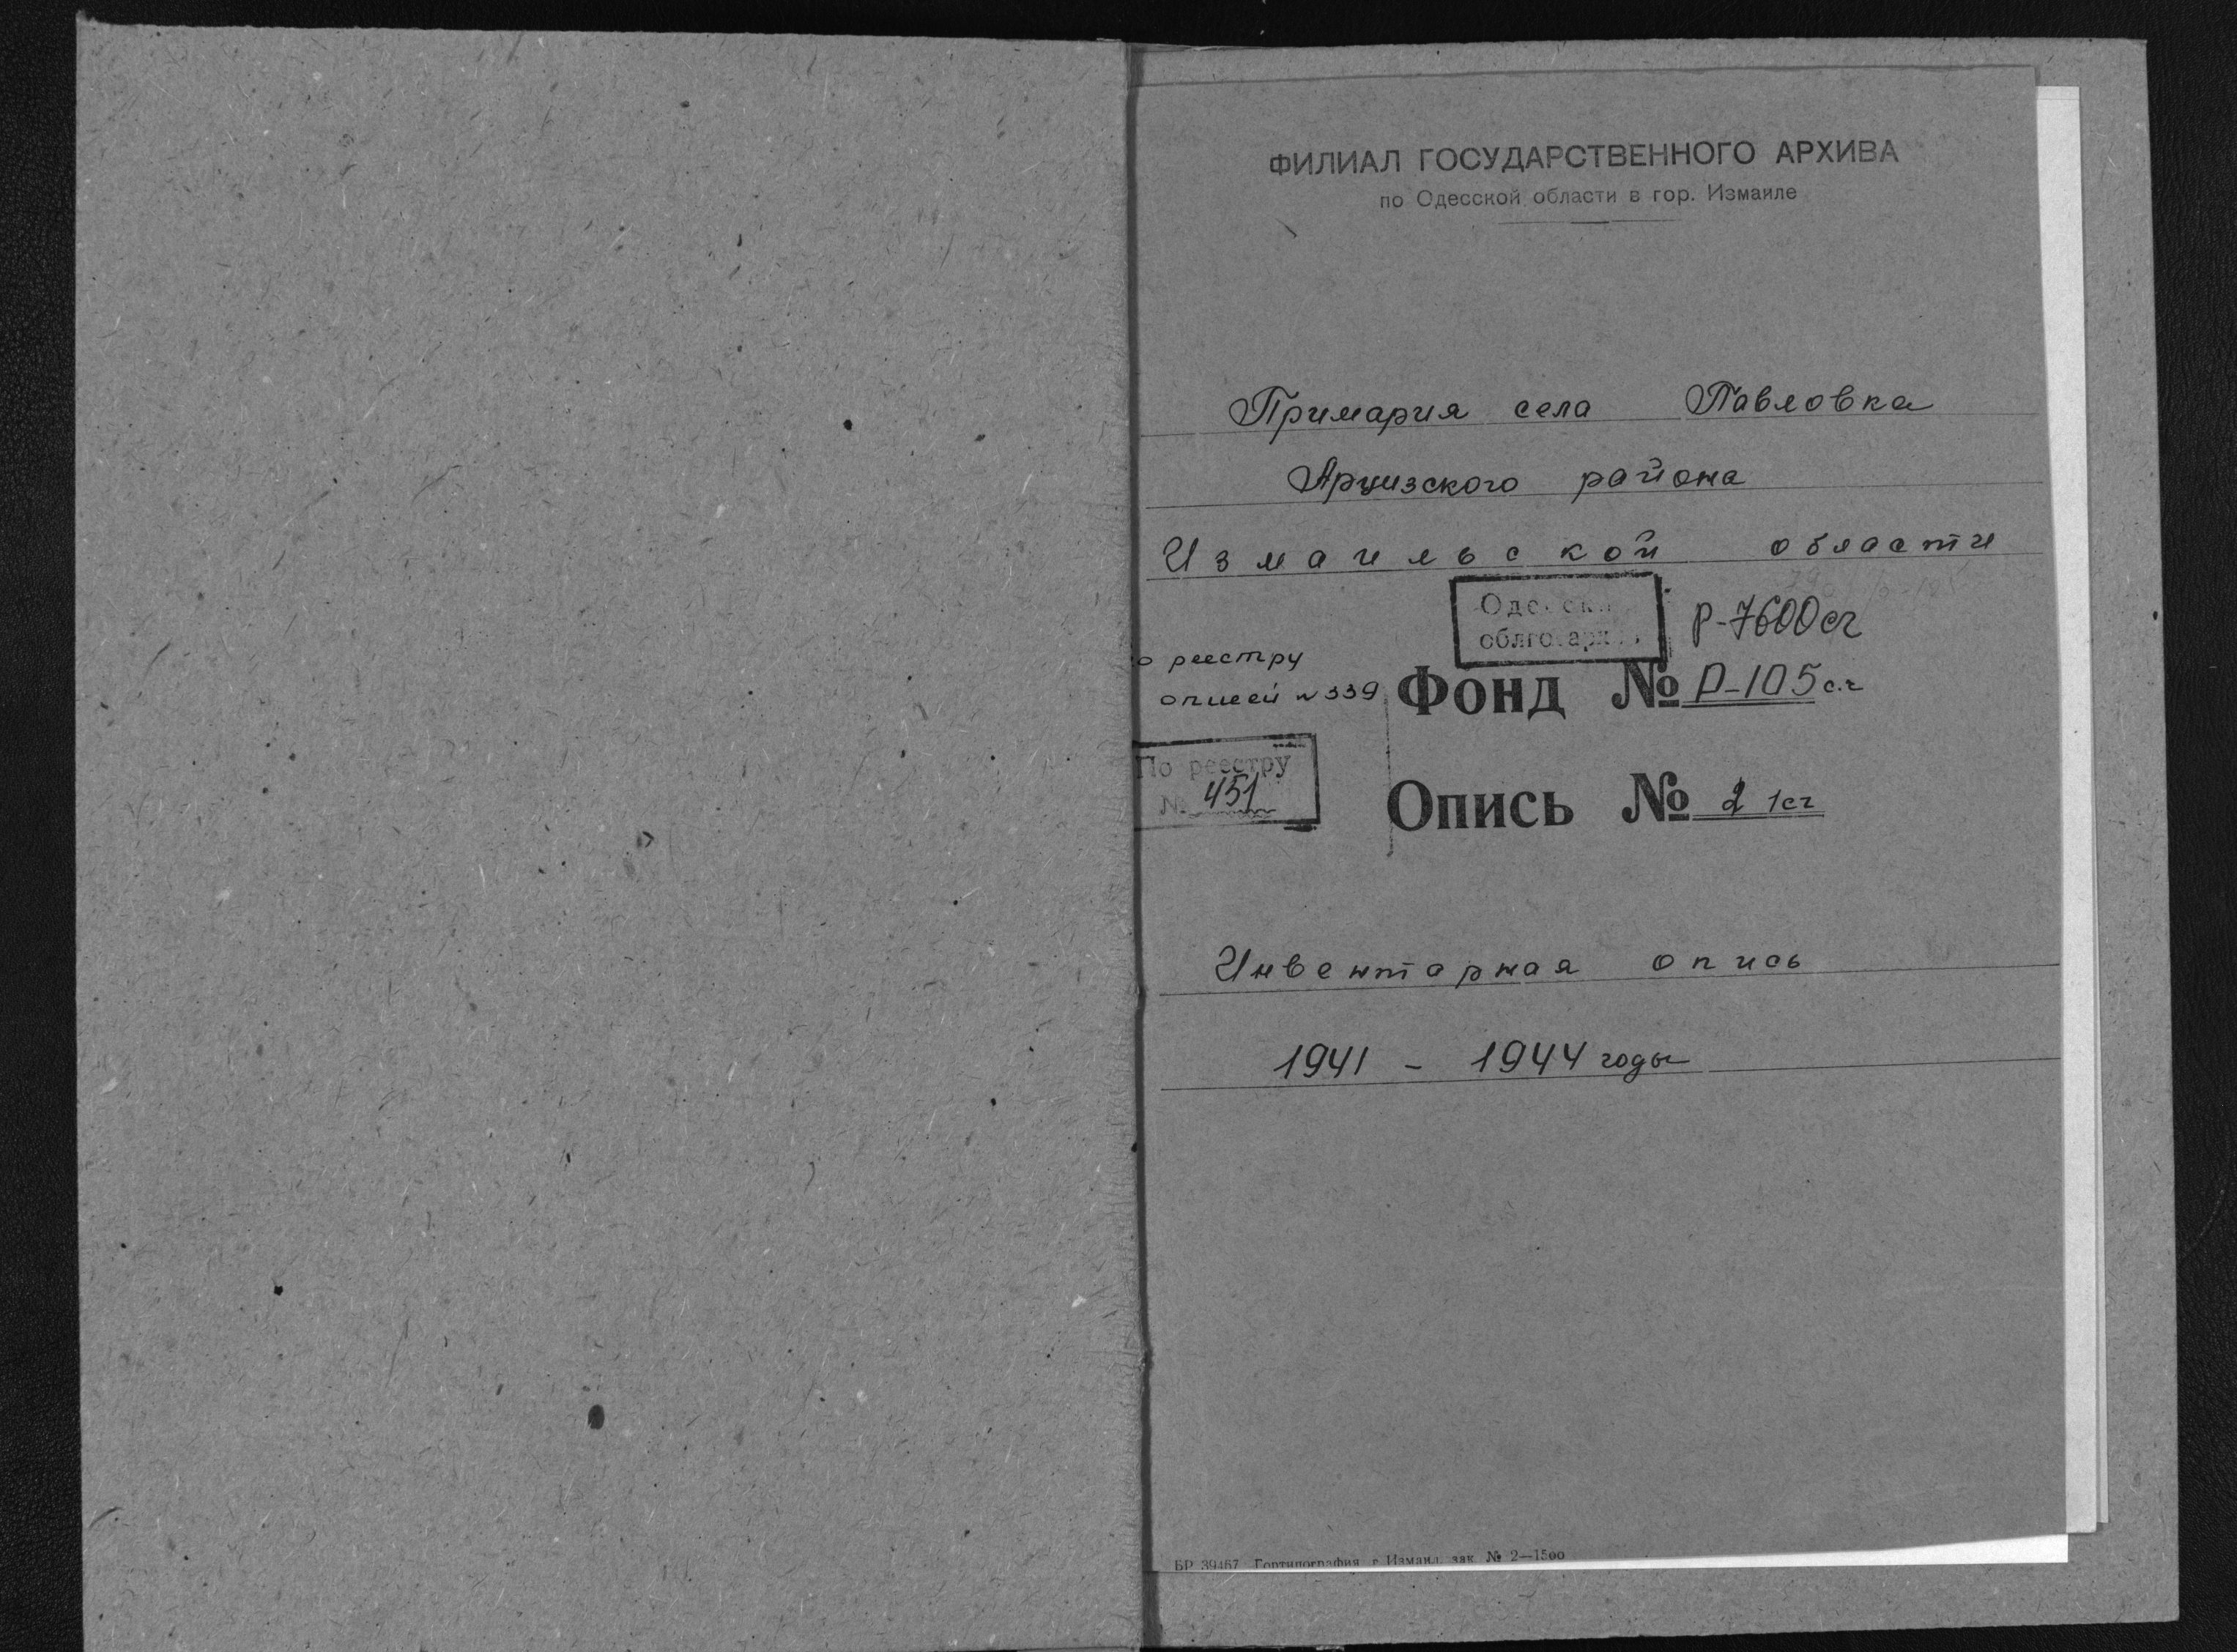 ФИЛИАЛ ГОСУДАРСТВЕННОГО АРХИВА
по Одесской области в гор. Измаиле
Примария села Павловка
Арцизского района
Измаильской области
р-7600сч
о реестру
описей №339
Фонд № Р-105 с.ч
По реестру
№ 451
Опись № 2 1сч
Инвентарная опись
1941 - 1944 годы
БР 39467 Гортипография г. Измаил, зак. № 2—1500